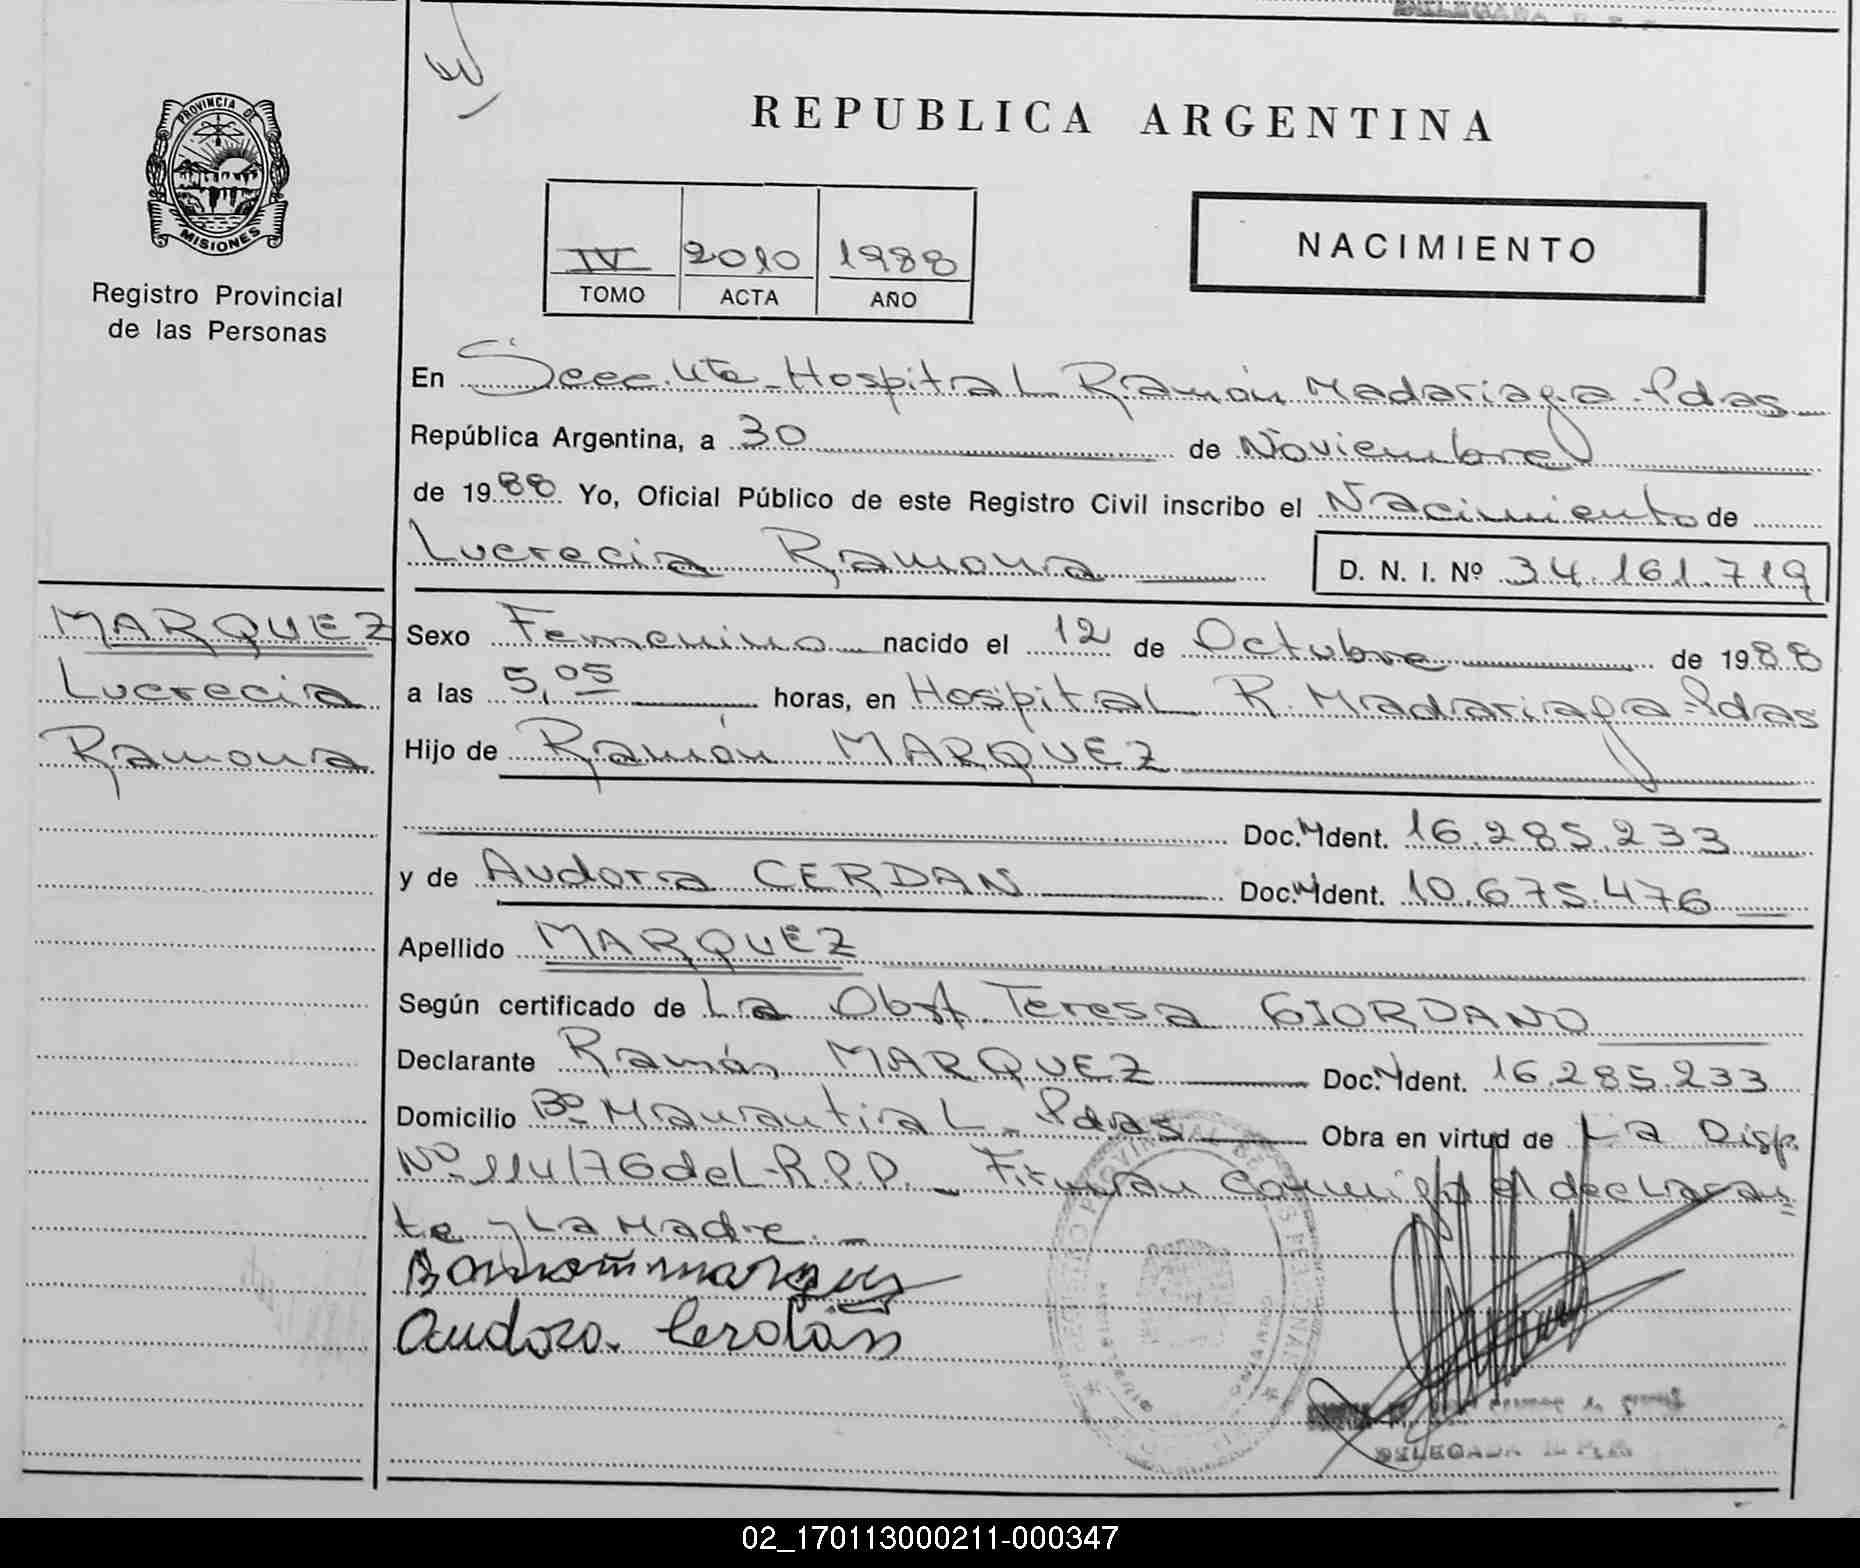 PROVINCIA DE
MISIONES
Registro Provincial
de las Personas
REPUBLICA ARGENTINA
IV 2010 1988
TOMO ACTA AÑO
NACIMIENTO
En Secc. 4ta - Hospital Ramón Madariaga - Pdas
República Argentina, a 30 de Noviembre
de 1988 Yo, Oficial Público de este Registro Civil inscribo el Nacimiento de
Lucrecia Ramona D. N. I. Nº 34.161.719
MARQUEZ
Lucrecia
Ramona
Sexo Femenino nacido el 12 de Octubre de 1988
a las 5,05 horas, en Hospital R. Madariaga - Pdas
Hijo de Ramón MARQUEZ
Doc. Ident. 16.285.233
y de Audora CERDAN Doc. Ident. 10.675.476
Apellido MARQUEZ
Según certificado de La Obst. Teresa GIORDANO
Declarante Ramón MARQUEZ Doc. Ident. 16.285.233
Domicilio Bº Manantial - Pdas Obra en virtud de La Disp.
Nº 114/76 del R.P.P. - Firman conmigo el declaran
te y La Madre. -
Audora Cerdán
DELEGADA
02_170113000211-000347